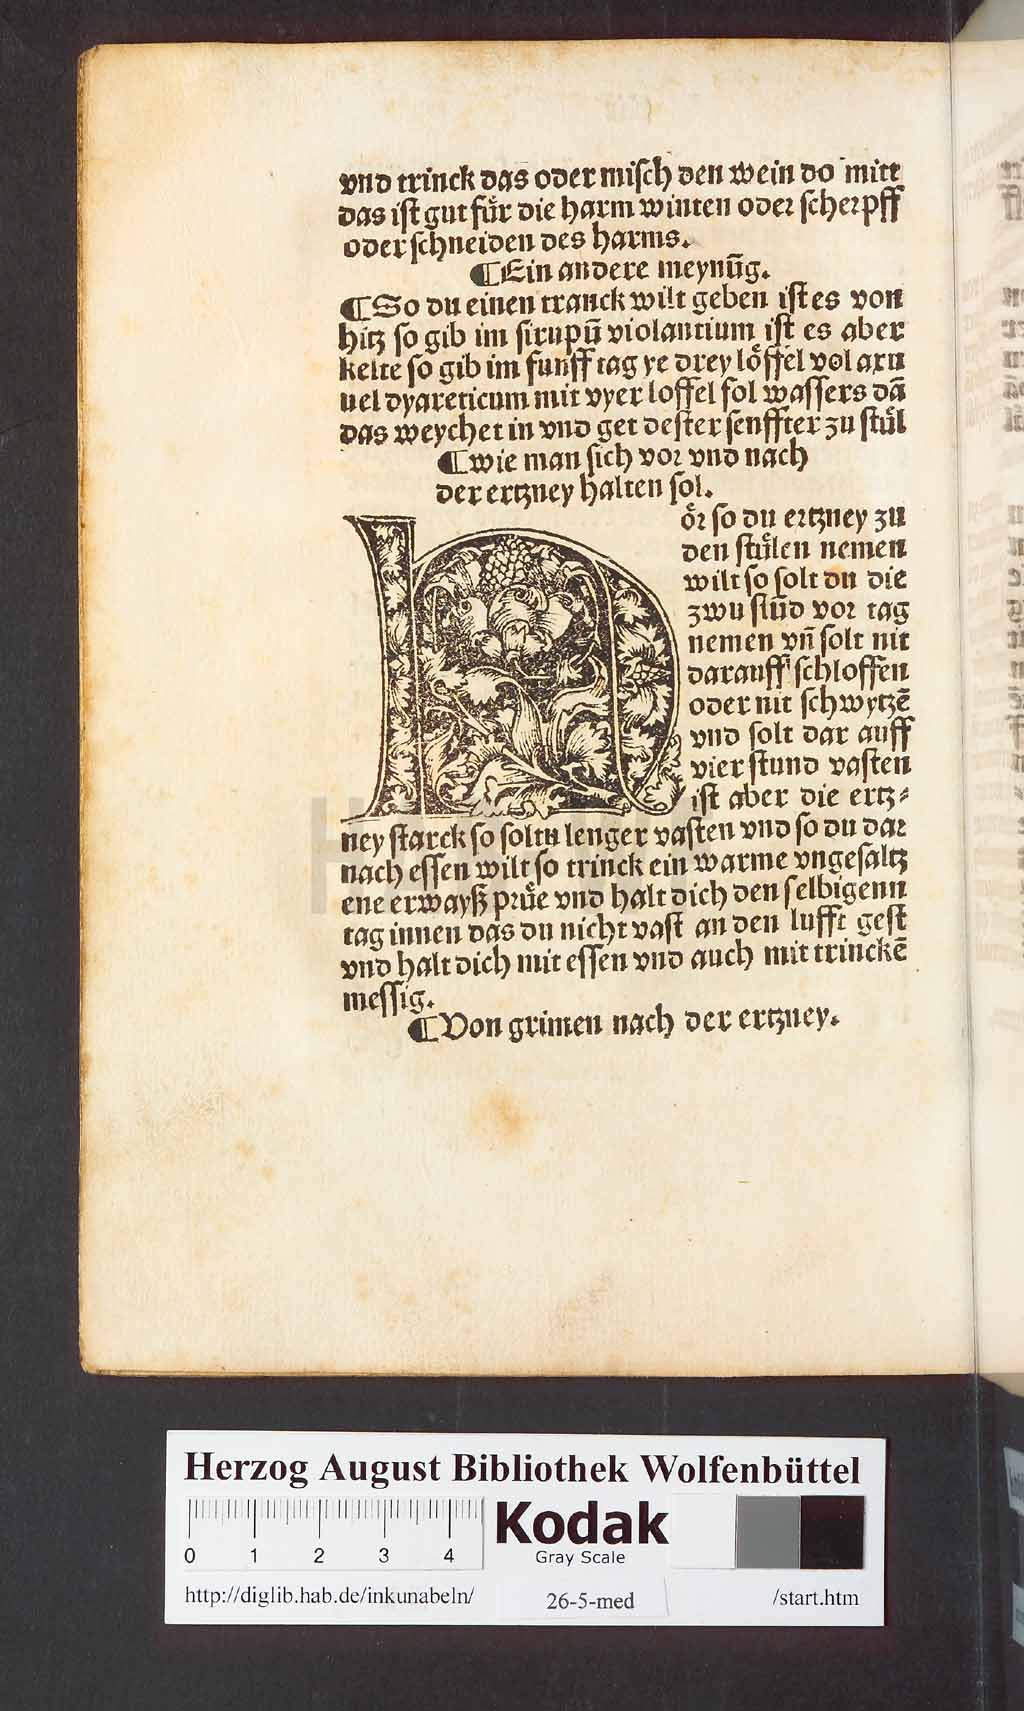 vnd trinck das oder misch den wein do mitt
das ist gut fuͤr die harm winten oder scherpff
oder schneiden des harms.
¶Ein andere meynūg.
¶So du einen tranck wilt geben ist es von
hitz so gib im sirupū violantium ist es aber
kelte so gib im funff tag ye drey loͤffel vol axu
uel dyareticum mit vyer loffel fol wassers dā
das weychet in vnd get dester senffter zu stuͤl
¶wie man sich vor vnd nach
der ertzney halten sol.
Hoͤr so du ertzney zu
den stuͤlen nemen
wilt so solt du die
zwu stūd vor tag
nemen vn̄ solt nit
darauff schloffen
oder nit schwytzē
vnd solt dar auff
vier stund vasten
ist aber die ertz⸗
ney starck so soltu lenger vasten vnd so du dar
nach essen wilt so trinck ein warme vngesaltz
ene erwayß pruͤe vnd halt dich den selbigenn
tag innen das du nicht vast an den lufft gest
vnd halt dich mit essen vnd auch mit trinckē
messig.
¶Von grimen nach der ertzney.
Herzog August Bibliothek Wolfenbüttel
0 1 2 3 4
Kodak
Gray Scale
http://diglib.hab.de/inkunabeln/ 26-5-med /start.htm